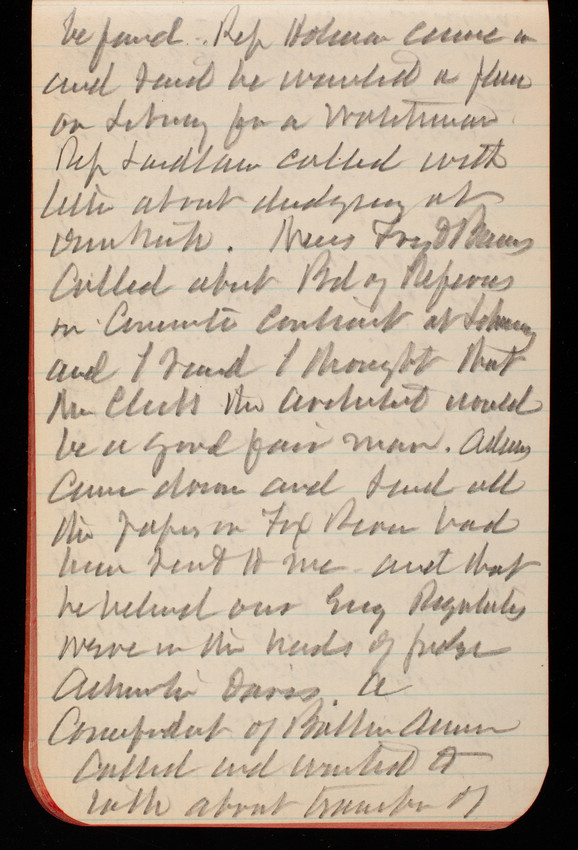 be found. Rep Holman came in
and said he wanted a place
on Library for a Watchman
Rep Laidlaw called with
letter about dredging at
. Mess & Barnes
Called about Bd of Referees
on Concrete Contract at Library
and I said I thought that
Mr Clark the architect would
be a good fair man. Adams
came down and said all
the papers in Fox River had
been sent to me and that
he believed our Engr Regulates
were in the hands of Judge
Davis. A
Correspondent of Baltimore American
Called and wanted to
talk about transfer of